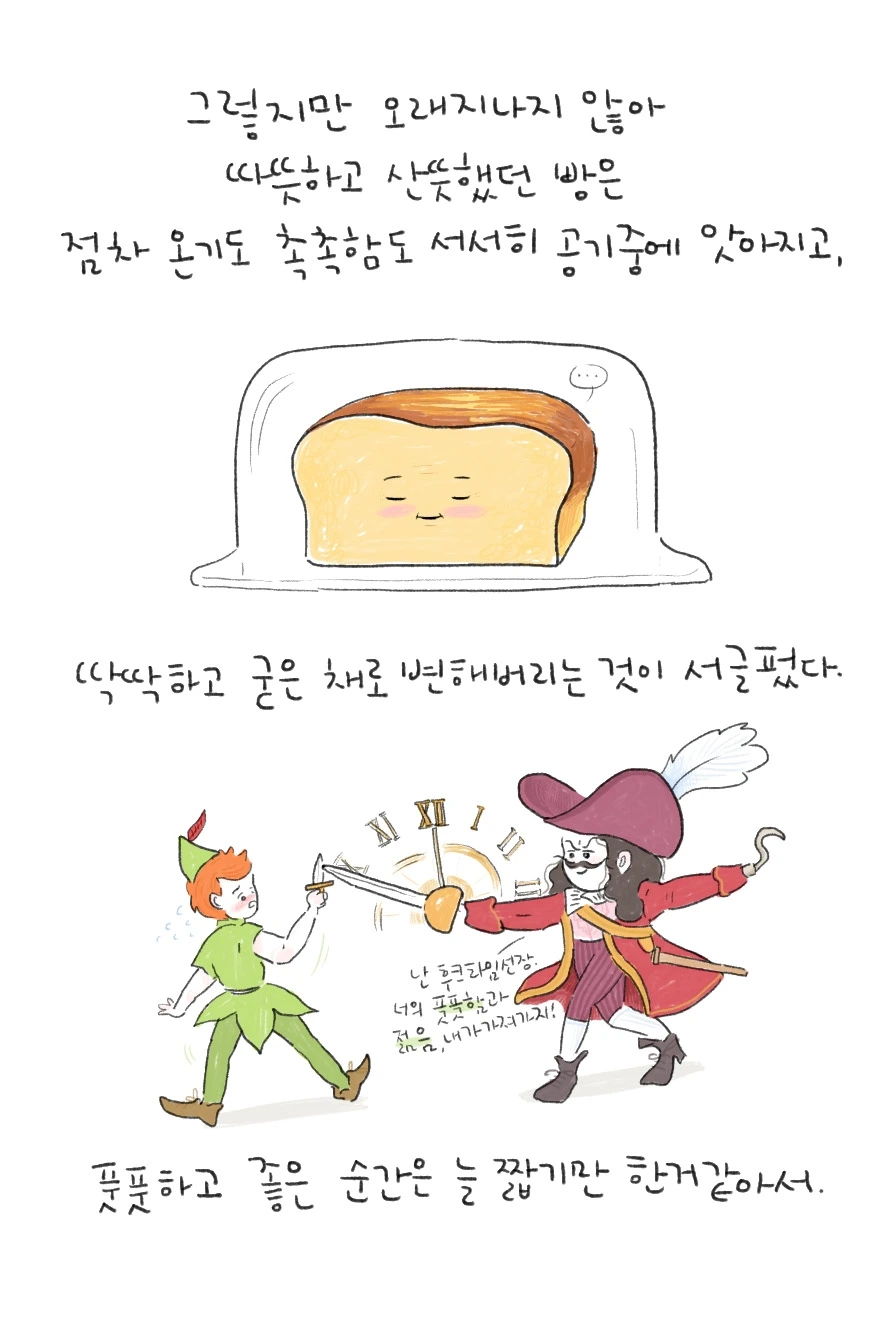 그렇지만 오래지나지 않아
따뜻하고 산뜻했던 빵은
점차 온기도 촉촉함도 서서히 공기중에 앗아지고,
...
딱딱하고 굳은 채로 변해버리는 것이 서글펐다.
X XI XII I II III
난 후크타임선장.
너의 풋풋함과
젊음, 내가가져가지!
풋풋하고 좋은 순간은 늘 짧기만 한거같아서.